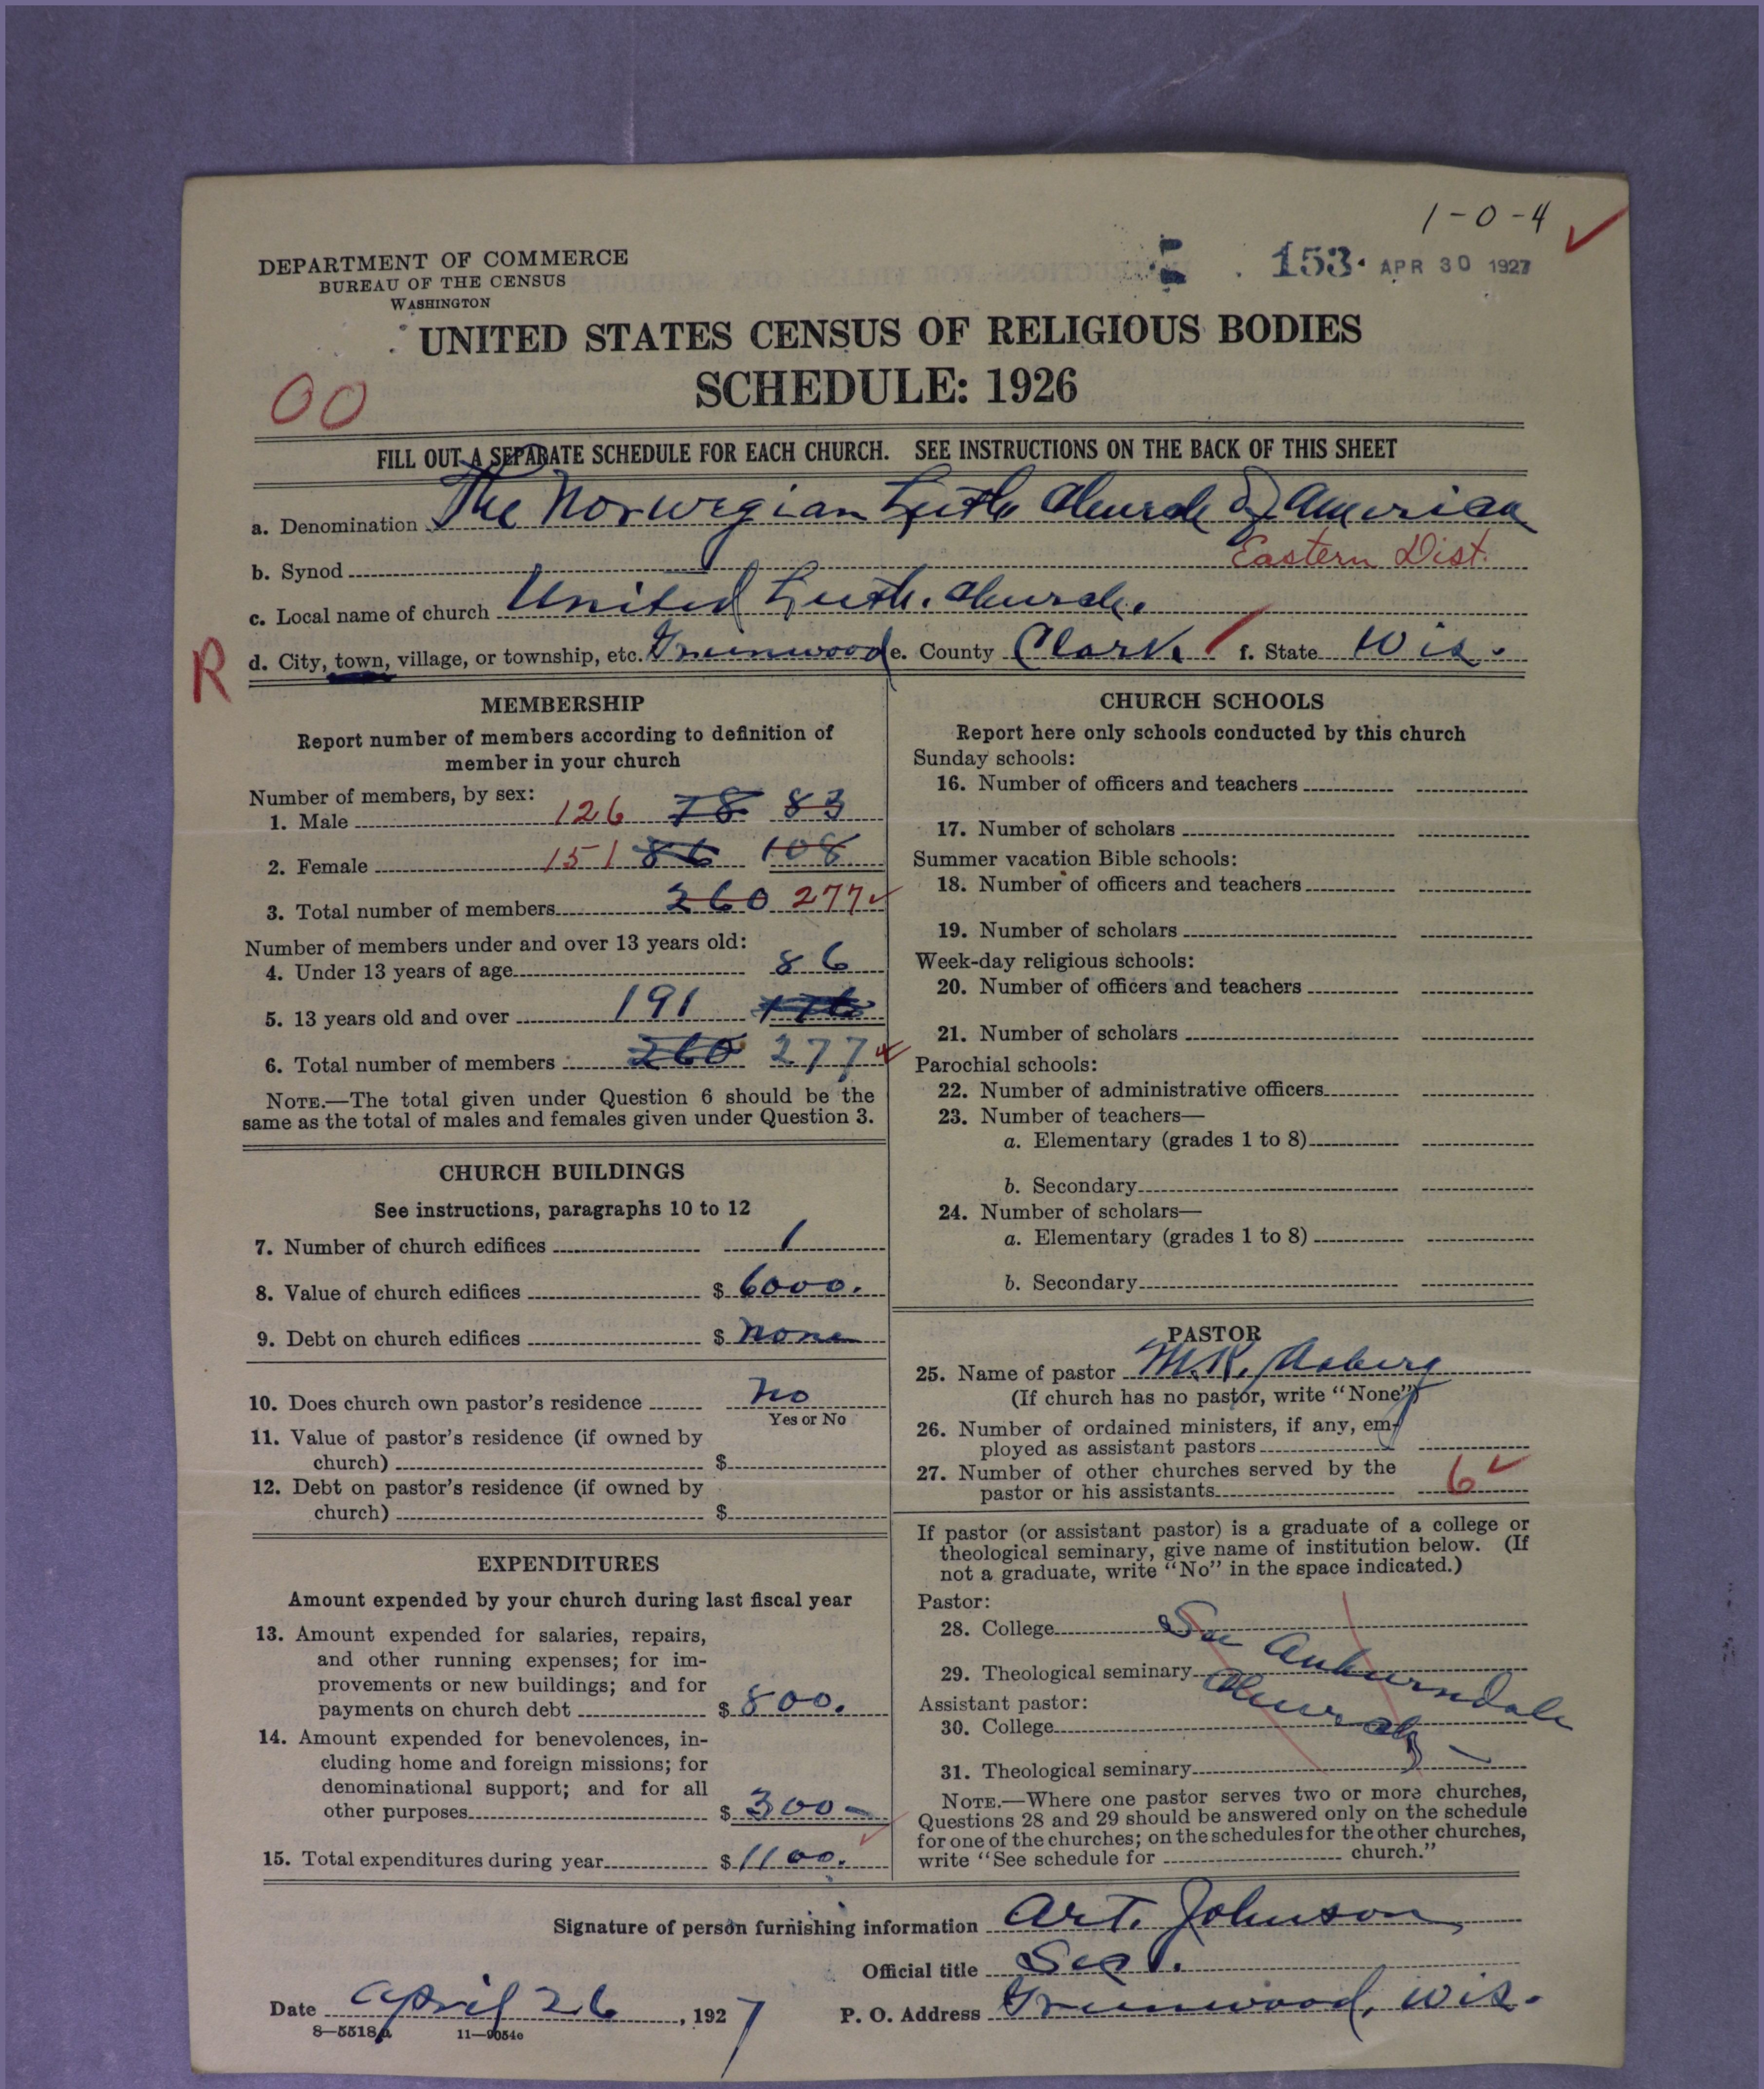 1-0-4
DEPARTMENT OF COMMERCE
BUREAU OF THE CENSUS
WASHINGTON
153. APR 30 1927
UNITED STATES CENSUS OF RELIGIOUS BODIES
SCHEDULE: 1926
00
FILL OUT A SEPARATE SCHEDULE FOR EACH CHURCH. SEE INSTRUCTIONS ON THE BACK OF THIS SHEET
a. Denomination The Norwegian Luth Church of American
b. Synod Eastern Dist.
c. Local name of church United Luth. Church.
R d. City, town, village, or township, etc. Greenwood e. County Clark. f. State Wis.
MEMBERSHIP
Report number of members according to definition of
member in your church
Number of members, by sex:
1. Male 126 78 83
2. Female 151 86 108
3. Total number of members 260 277
Number of members under and over 13 years old:
4. Under 13 years of age 86
5. 13 years old and over 191
6. Total number of members 260 277
NOTE.—The total given under Question 6 should be the
same as the total of males and females given under Question 3.
CHURCH BUILDINGS
See instructions, paragraphs 10 to 12
7. Number of church edifices 1
8. Value of church edifices $ 6000.
9. Debt on church edifices $ none
10. Does church own pastor's residence no
Yes or No
11. Value of pastor's residence (if owned by
church) $
12. Debt on pastor's residence (if owned by
church) $
EXPENDITURES
Amount expended by your church during last fiscal year
13. Amount expended for salaries, repairs,
and other running expenses; for im-
provements or new buildings; and for
payments on church debt $ 800.
14. Amount expended for benevolences, in-
cluding home and foreign missions; for
denominational support; and for all
other purposes $ 300-
15. Total expenditures during year $ 1100.
CHURCH SCHOOLS
Report here only schools conducted by this church
Sunday schools:
16. Number of officers and teachers
17. Number of scholars
Summer vacation Bible schools:
18. Number of officers and teachers
19. Number of scholars
Week-day religious schools:
20. Number of officers and teachers
21. Number of scholars
Parochial schools:
22. Number of administrative officers
23. Number of teachers—
a. Elementary (grades 1 to 8)
b. Secondary
24. Number of scholars—
a. Elementary (grades 1 to 8)
b. Secondary
PASTOR
25. Name of pastor M.K. Aaberg
(If church has no pastor, write "None")
26. Number of ordained ministers, if any, em-
ployed as assistant pastors
27. Number of other churches served by the
pastor or his assistants 6
If pastor (or assistant pastor) is a graduate of a college or
theological seminary, give name of institution below. (If
not a graduate, write "No" in the space indicated.)
Pastor:
28. College See Auburndale
29. Theological seminary Church
Assistant pastor:
30. College
31. Theological seminary
NOTE.—Where one pastor serves two or more churches,
Questions 28 and 29 should be answered only on the schedule
for one of the churches; on the schedules for the other churches,
write "See schedule for church."
Signature of person furnishing information Art. Johnson
Official title Sec.
Date April 26, 1927 P. O. Address Greenwood, Wis.
8—5518a 11—9054c